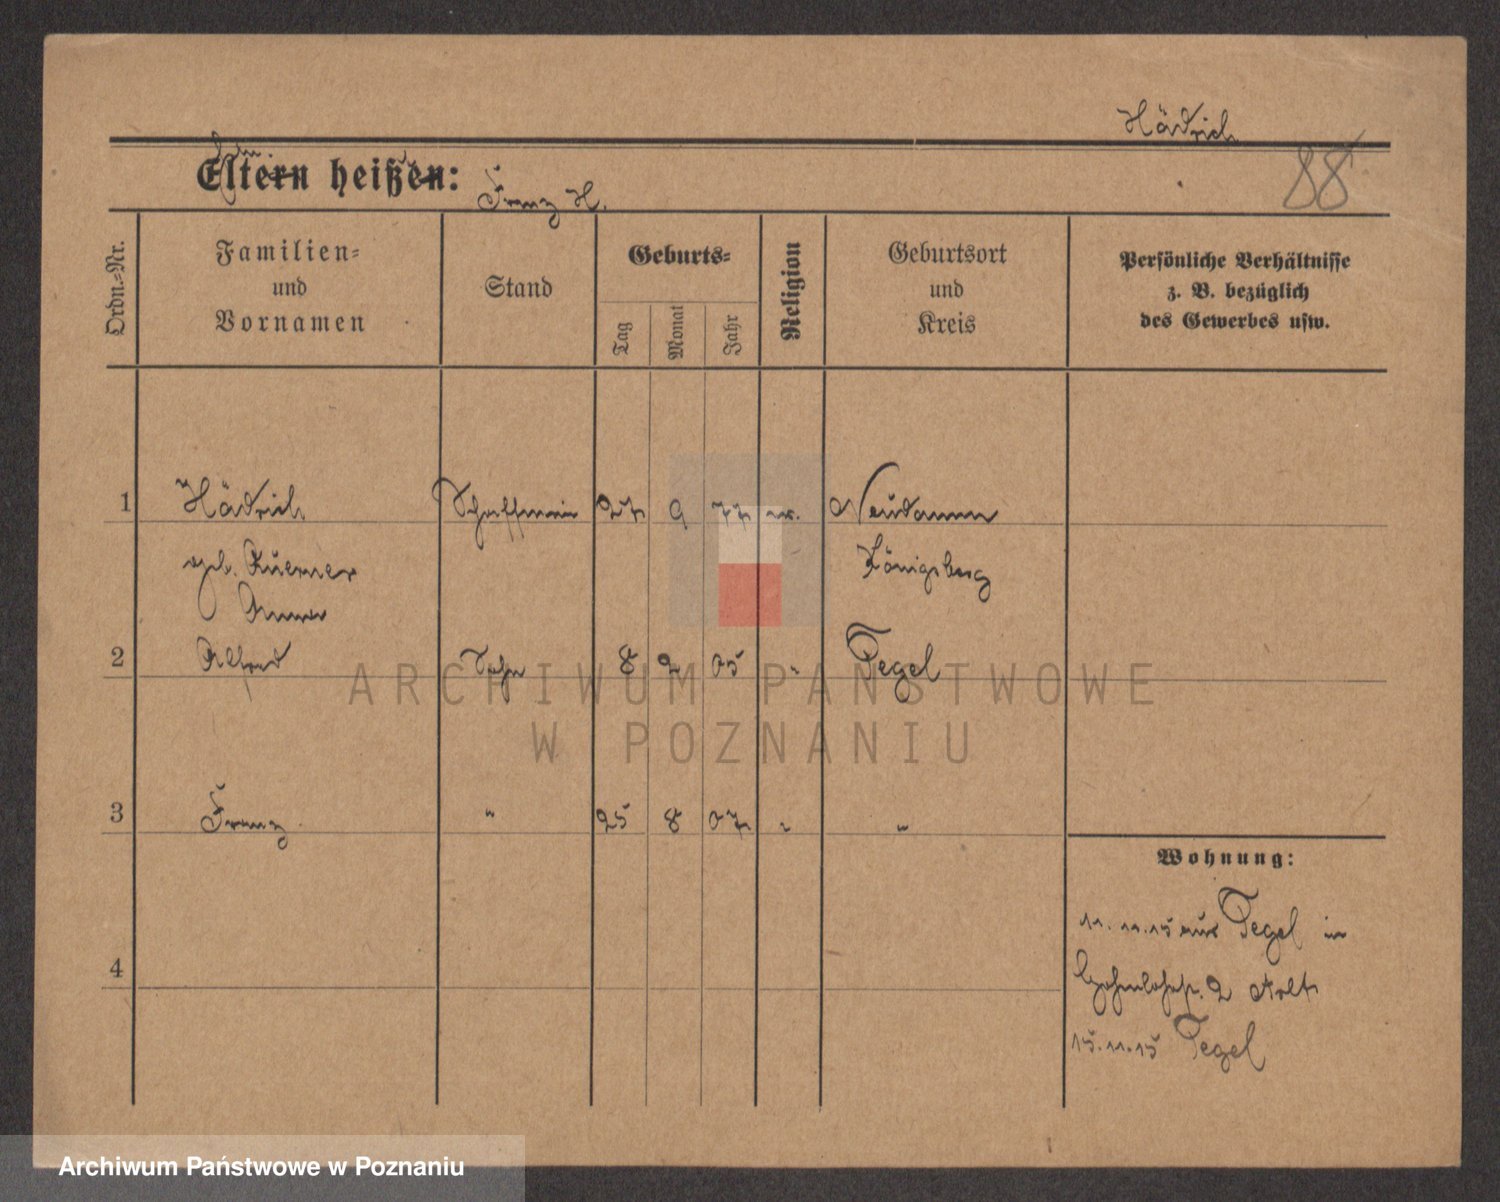 Hädrich
88
Eltern heißen: Franz H.
Ordn.-Nr.
Familien-
und
Vornamen
Stand
Geburts-
Tag
Monat
Jahr
Religion
Geburtsort
und
Kreis
Persönliche Verhältnisse
z. B. bezüglich
des Gewerbes usw.
1 Hädrich 27 9 77 ev. Neudamm
geb. Königsberg
Anna
2 Alfred Sohn 8 2 05 " Tegel
3 Franz " 25 8 07 " "
Wohnung:
11.11.15 aus Tegel in
2 Arlt
4
15.11.15 Tegel
ARCHIWUM PAŃSTWOWE
W POZNANIU
Archiwum Państwowe w Poznaniu